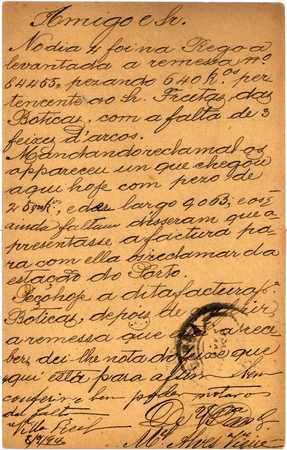 Amigo e Sr.
No dia 4 foi na Regoa
levantada a remessa nº
64455, pezando 640 k.os per
tencente ao Sr. Freitas, das
Boticas, com a falta de 3
feixes d'arcos.
Mandando reclamal os
appareceu un que chegou
aqui hoje com pezo de
25 mk, e de largo 9,003; e os
ainda faltam disseram que a
presentasse a factura pa
ra com ella reclamar da
estação do Porto.
Peço hoje a dita factura p.ª
Boticas, depois de
a remessa que a rece
bers dei lhe nota do feixe que
aqui está para a fim bem
conferir e bem pode notar os
da falta
Villa Real
8/9/94
De V.
M. Alves